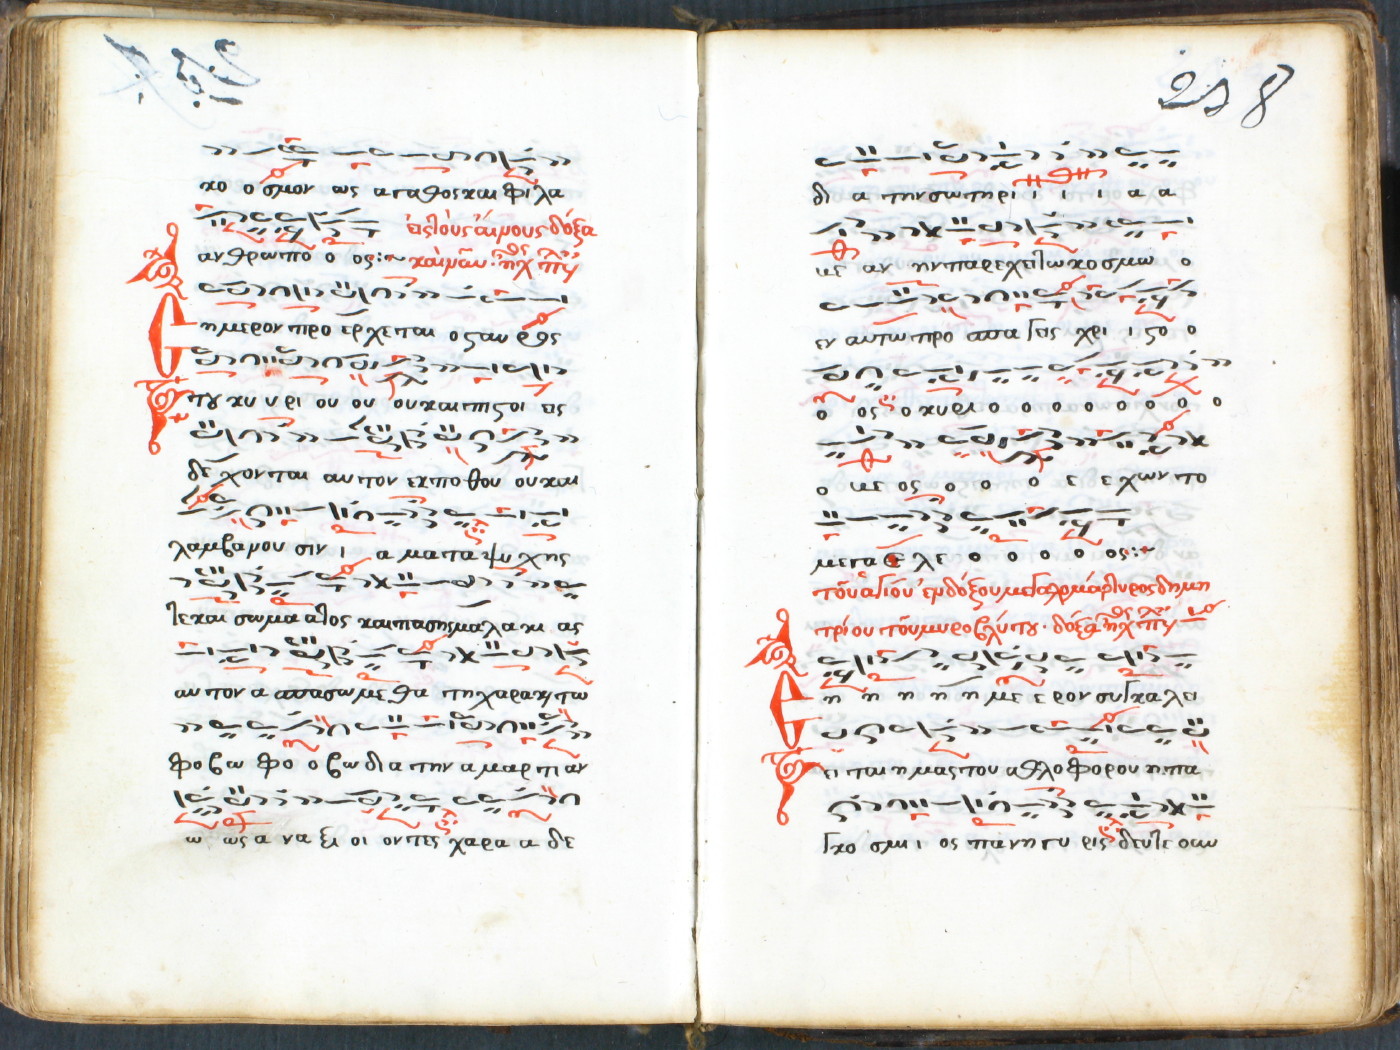 κο ο σμον ως αγαθος και φι λα
αν θρωπο ο ος:~ εις τους αίνους δόξα
και νῦν· ἦχος πλ
η μερον προ ερ χεται ο σταυ ρος
του κυ υ ρι ου ου ου και πιστοι εις
δε χον ται αυ τον εκ πο θου ου και
λαμβανου σιν ι α μα τα ψυ χης
τε και σωμα α τος και πασης μα λα κι ας
αυ τον α ασπασω με θα τη χαρα κ τω
φο βω φο ο βω δι α την α μαρτι αν
ω ως α να ξι οι οντες χαρα α δε
238
δι α την σω τηρι ι ι ι α α
με αν ην παρεχει τω κο σμω ο
εν αυτω προσπα γεις χρι ι στο ο
ο ος ο κυρι ο ο ο ο ο ο ο ο
ο με ος ο ο ο ε ε χων το
μεγα ε λε ο ο ο ο ος:~
τοῦ ἁγίου ἐνδόξου μεγαλομάρτυρος δημη
τρίου τοῦ μυροβλύτου· δόξα ἦχος πλ
η η η η η με ε ρον συγκα λει
ει ται η μας του α θλο φορου η πα
γκο σμι ι ος πανη γυ ρις δευτε ουν